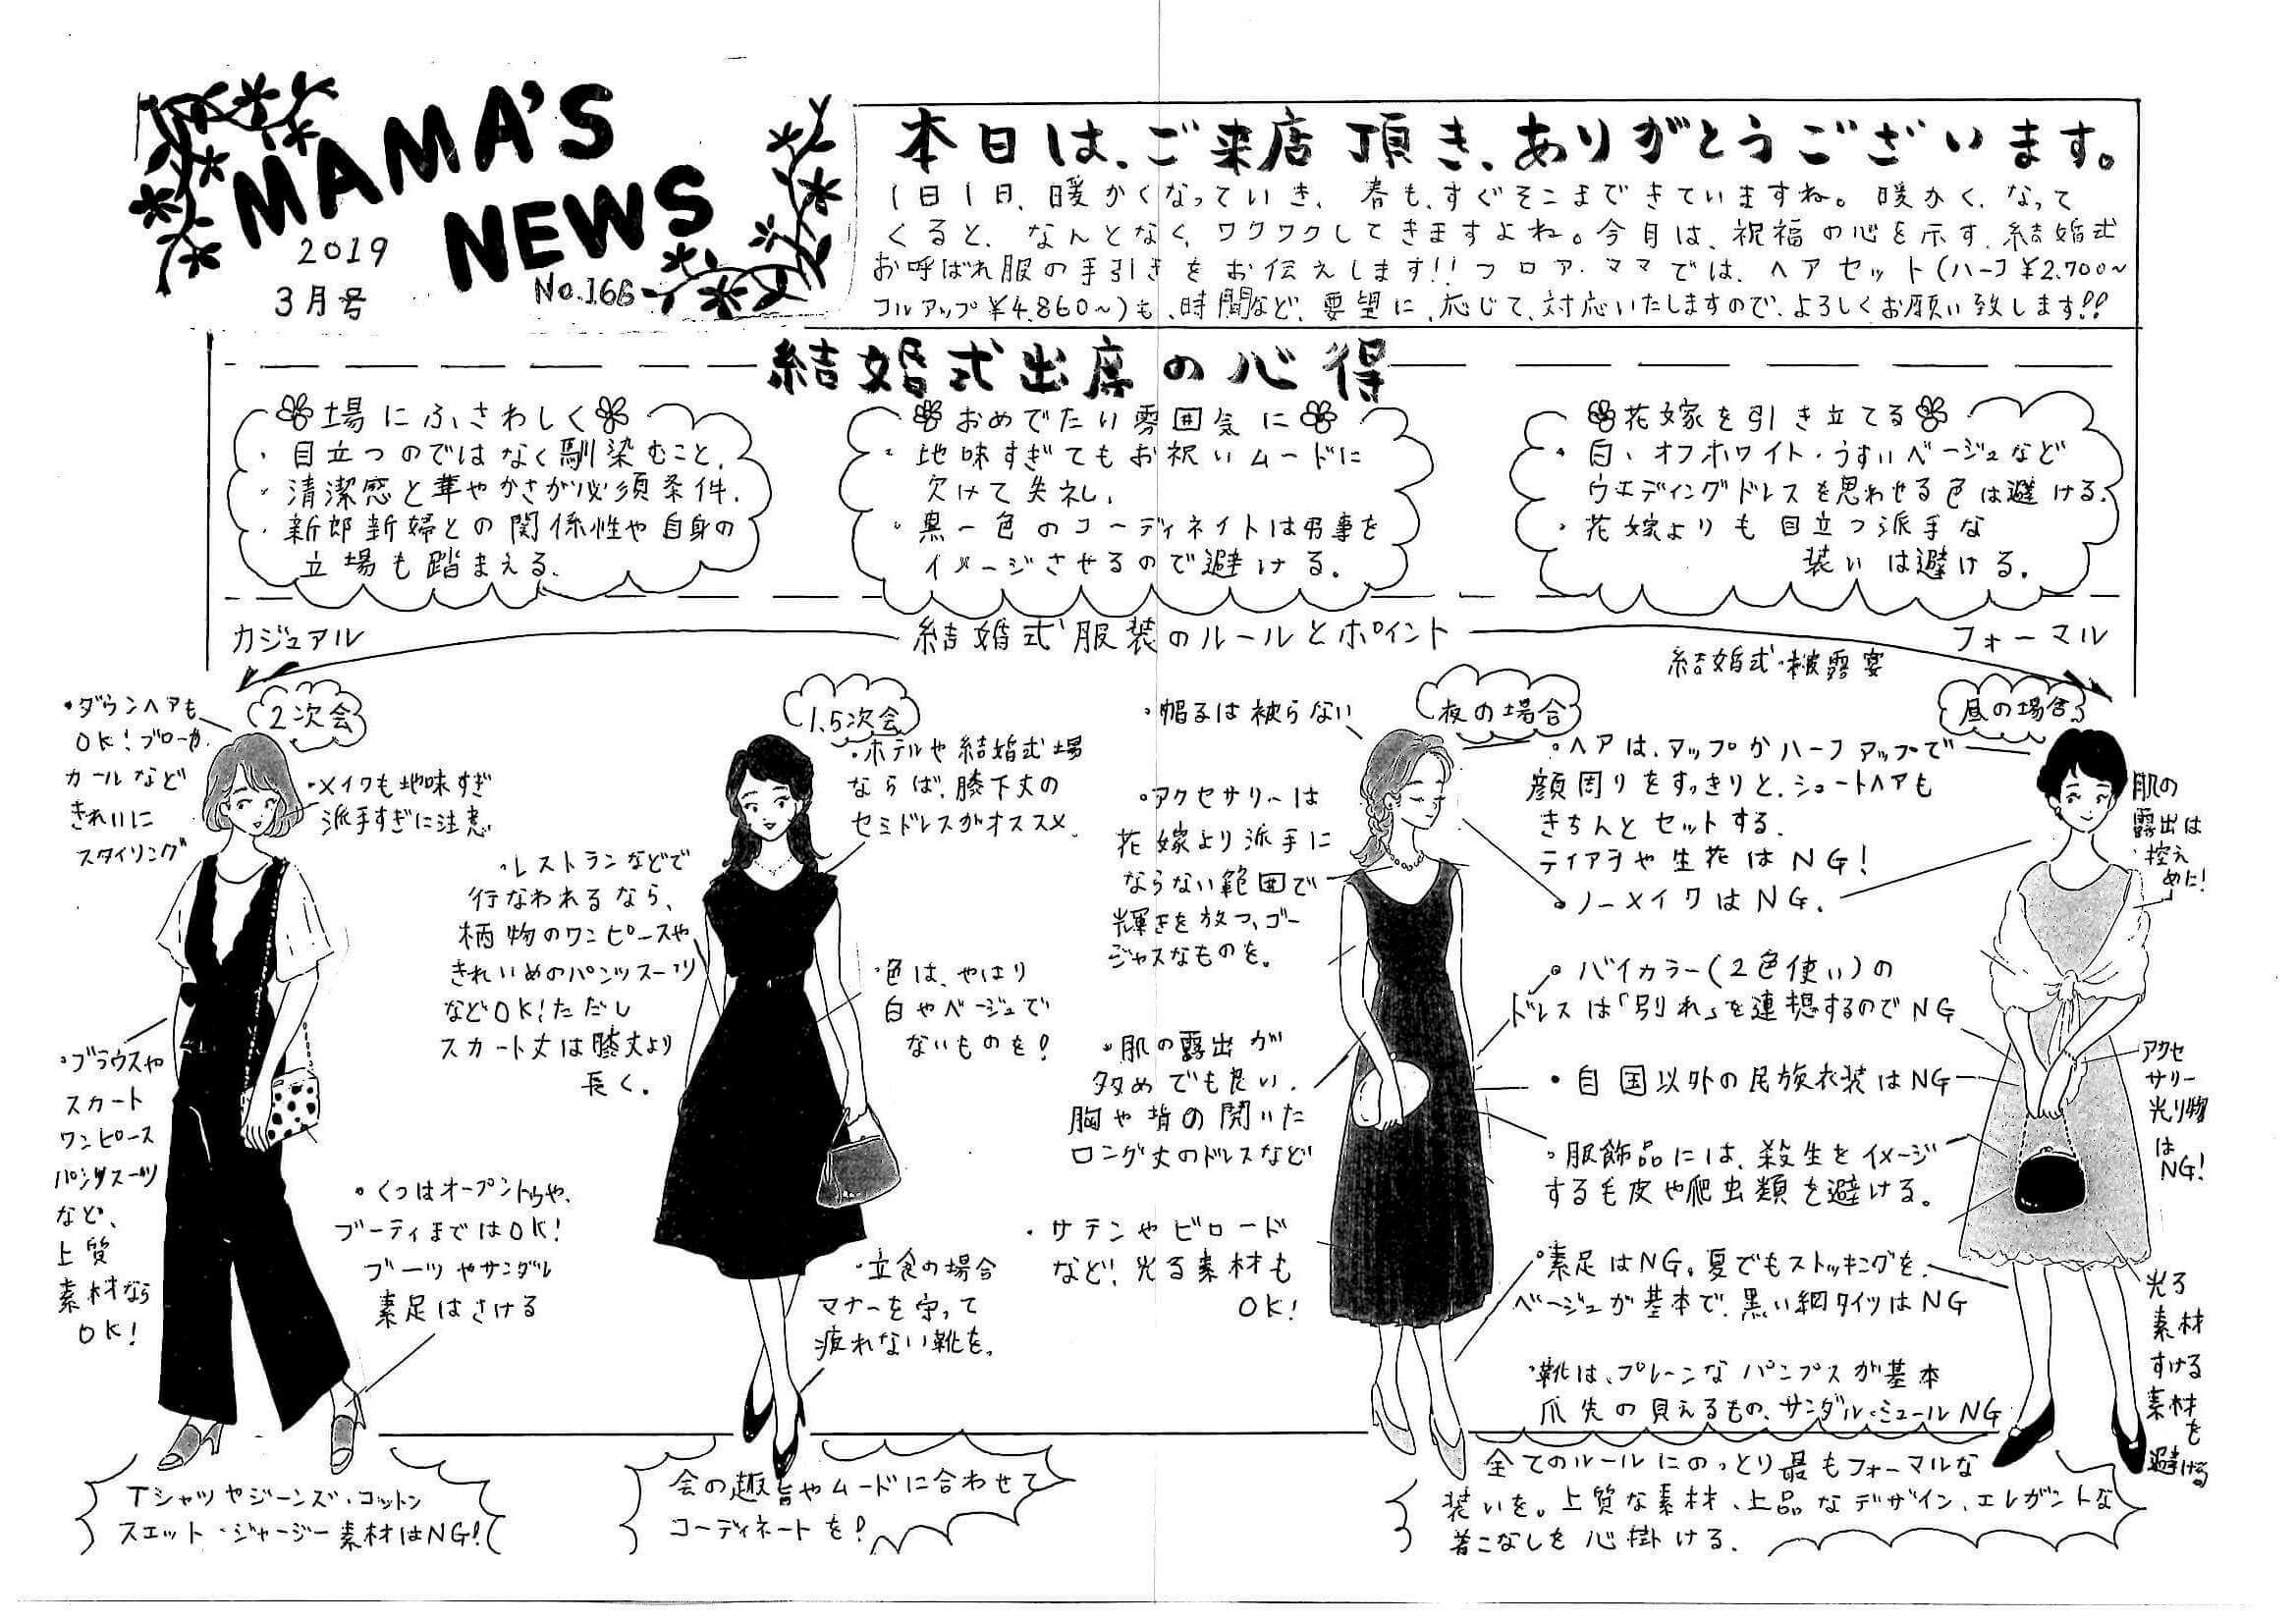 MAMA'S
NEWS
2019
3月号
No.166
本日は、ご来店頂き、ありがとうございます。
1日1日、暖かくなっていき、春も、すぐそこまできていますね。暖かく、なって
くると、なんとなく、ワクワクしてきますよね。今月は、祝福の心を示す、結婚式
お呼ばれ服の手引きをお伝えします!!フロア・ママでは、ヘアセット(ハーフ¥2.700〜
フルアップ¥4.860〜)も、時間など、要望に、応じて、対応いたしますので、よろしくお願い致します!!
結婚式出席の心得
場にふさわしく
・目立つのではなく馴染むこと、
・清潔感と華やかさが必須条件、
・新郎新婦との関係性や自身の
立場も踏まえる、
おめでたい雰囲気に
・地味すぎてもお祝いムードに
欠けて失礼、
・黒一色のコーディネイトは弔事を
イメージさせるので避ける。
花嫁を引き立てる
・白、オフホワイト・うすいベージュなど
ウエディングドレスを思わせる色は避ける、
・花嫁よりも目立つ派手な
装いは避ける。
カジュアル
結婚式服装のルールとポイント
フォーマル
結婚式・披露宴
2次会
・ダウンヘアも
OK!ブローカ
カールなど
きれいに
スタイリング
・メイクも地味すぎ
派手すぎに注意
・ブラウスや
スカート
ワンピース
パンツスーツ
など、
上質
素材なら
OK!
・くつはオープントゥや、
ブーティまではOK!
ブーツやサンダル
素足はさける
Tシャツやジーンズ・コットン
スエット・ジャージー素材はNG!
1.5次会
・ホテルや結婚式場
ならば、膝下丈の
セミドレスがオススメ、
・レストランなどで
行なわれるなら、
柄物のワンピースや
きれいめのパンツスーツ
などOK!ただし
スカート丈は膝丈より
長く。
・色は、やはり
白やベージュで
ないものを!
・立食の場合
マナーを守って
疲れない靴を。
会の趣旨やムードに合わせて
コーディネートを!
夜の場合
・帽子は被らない
・アクセサリーは
花嫁より派手に
ならない範囲で
輝きを放つ、ゴー
ジャスなものを。
・肌の露出が
多めでも良い、
胸や背の開いた
ロング丈のドレスなど
・サテンやビロード
など、光る素材も
OK!
昼の場合
・ヘアは、アップかハーフアップで
顔周りをすっきりと、ショートヘアも
きちんとセットする、
ティアラや生花はNG!
・ノーメイクはNG.
・バイカラー(2色使い)の
ドレスは「別れ」を連想するのでNG
・自国以外の民族衣装はNG
・服飾品には、殺生をイメージ
する毛皮や爬虫類を避ける。
・素足はNG。夏でもストッキングを、
ベージュが基本で、黒い網タイツはNG
・靴は、プレーンなパンプスが基本
爪先の見えるもの、サンダル・ミュールNG
肌の
露出は
控え
めに!
アクセ
サリー
光り物
は
NG!
光る
素材
すける
素材
を
避ける
全てのルールにのっとり最もフォーマルな
装いを。上質な素材、上品なデザイン、エレガントな
着こなしを心掛ける、